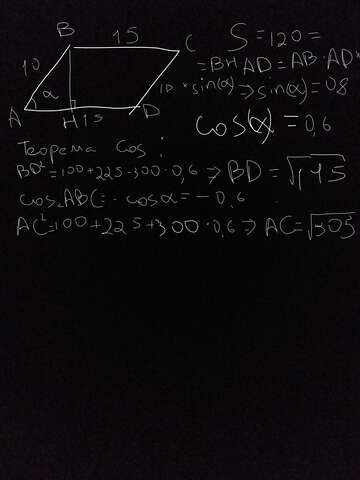 B 15 C
10 α 10
A H 15 D
S = 120 =
= BH · AD = AB · AD *
* sin(α) ⇒ sin(α) = 08
cos(α) = 0,6
Теорема cos:
BD² = 100 + 225 - 300 · 0,6 ⇒ BD = √145
cos∠ABC = - cosα = - 0,6
AC² = 100 + 225 + 300 · 0,6 ⇒ AC = √505